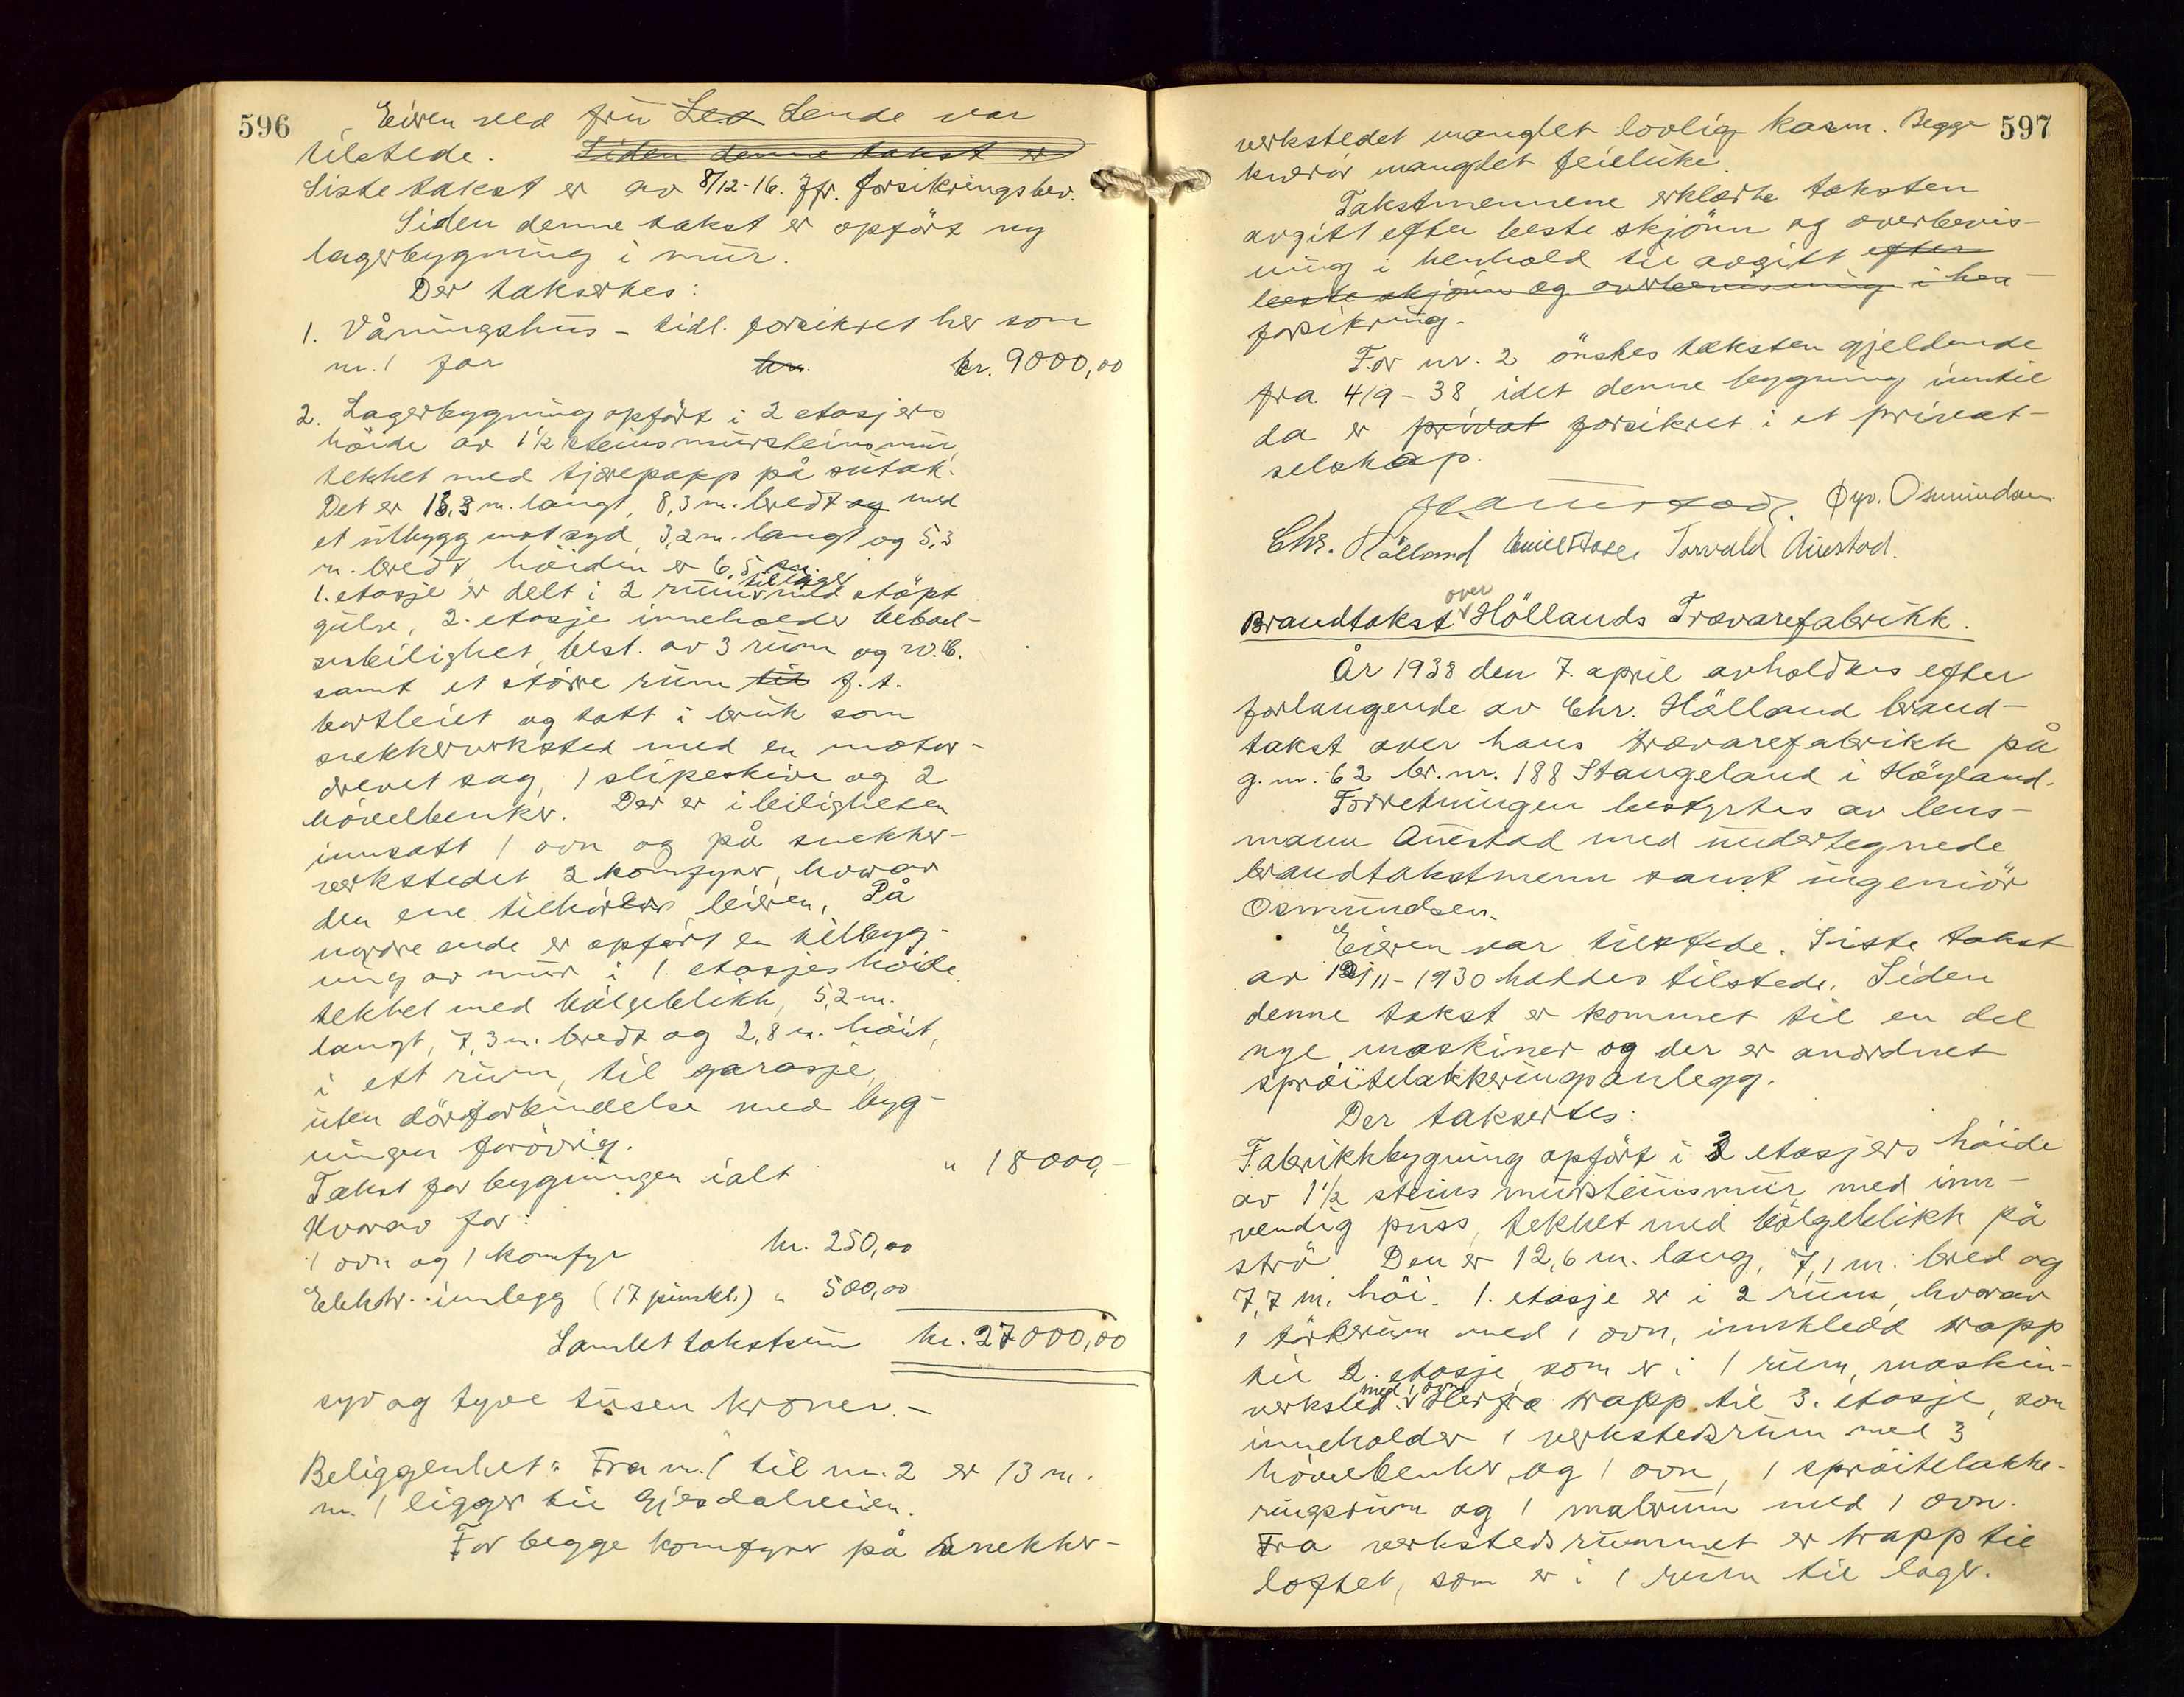 596
Eieren ved fru Lea Lende var
tilstede. Siden denne takst er
Siste takst er av 8/12-16. Jfr. forsikringsbev.
Siden denne takst er opført ny
lagerbygning i mur.
Der taksertes:
1. Våningshus - tidl. forsikret her som
nr. 1 for kr. kr. 9000,00
2. Lagerbygning opført i 2 etasjers
høide av 1½ steins mursteinsmur,
tekket med tjærepapp på sutak.
Det er 13,3 m. langt, 8,3 m. bredt og med
et utbygg mot syd, 3,2 m. langt og 5,3
m. bredt, høiden er 6,5 m.
1. etasje er delt i 2 rum til lager med støpt
gulv, 2. etasje inneholder bebod-
sesleilighet, best. av 3 rum og w.c.
samt et større rum til f.t.
bortleiet og tatt i bruk som
snekkerverksted med en motor-
drevet sag, 1 slipeskive og 2
høvelbenker. Der er i leiligheten
innsatt 1 ovn og på snekker-
verkstedet 2 komfyrer, hvorav
den ene tilhører leieren. På
nordre ende er opført en tilbyg-
ning av mur i 1. etasjes høide
tekket med bølgeblikk, 5,2 m.
langt, 7,3 m. bredt og 2,8 m. høit,
i ett rum, til garasje,
uten dørforbindelse med byg-
ningen forøvrig.
Takst for bygningen ialt " 18000,-
Hvorav for:
1 ovn og 1 komfyr kr. 250,00
Elektr. innlegg (17 punkt.) " 500,00
Samlet takstsum kr. 27000,00
syv og tyve tusen kroner.-
Beliggenhet: Fra nr. 1 til nr. 2 er 13 m.
nr. 1 ligger til Gjesdalveien.
For begge komfyrer på snekker-
597
verkstedet manglet lovlig karm. Begge
kverør manglet feieluke.
Takstmennene erklærte taksten
avgitt efter beste skjønn og overbevis-
ning i henhold til avgitt efter
beste skjønn og overbevisning i hen-
forsikring.
For nr. 2 ønskes taksten gjeldende
fra 4/9-38 idet denne bygning inntil
da er privat forsikret i et privat-
selskap.
Øyv. Osmundsen
Chr. Hölland Torvald Auestad.
Brandtakst over Höllands Trævarefabrikk.
År 1938 den 7. april avholdtes efter
forlangende av Chr. Hölland brand-
takst over hans trævarefabrikk på
g.nr. 62 br.nr. 188 Stangeland i Høyland.
Forretningen bestyrtes av lens-
mann Auestad med undertegnede
brandtakstmenn samt ingeniør
Osmundsen.
Eieren var tilstede. Siste takst
av 12/11-1930 hattes tilstede. Siden
denne takst er kommet til en del
nye maskiner og der er anordnet
sprøitelakkeringsanlegg.
Der taksertes:
Fabrikkbygning opført i 3 etasjers høide
av 1½ steins mursteinsmur med inn-
vendig puss, tekket med bølgeblikk på
strø. Den er 12,6 m. lang, 7,1 m. bred og
7,7 m. høi. 1. etasje er i 2 rum, hvorav
1 tørkerum med 1 ovn, innkledd trapp
til 2. etasje, som er i 1 rum, maskin-
verksted med 1 ovn. Herfra trapp til 3. etasje, som
inneholder 1 verkstedsrum med 3
høvelbenker og 1 ovn, 1 sprøitelakke-
ringsrum og 1 malerum med 1 ovn.
Fra verkstedsrummet er trapp til
loftet, som er i 1 rum til lager.